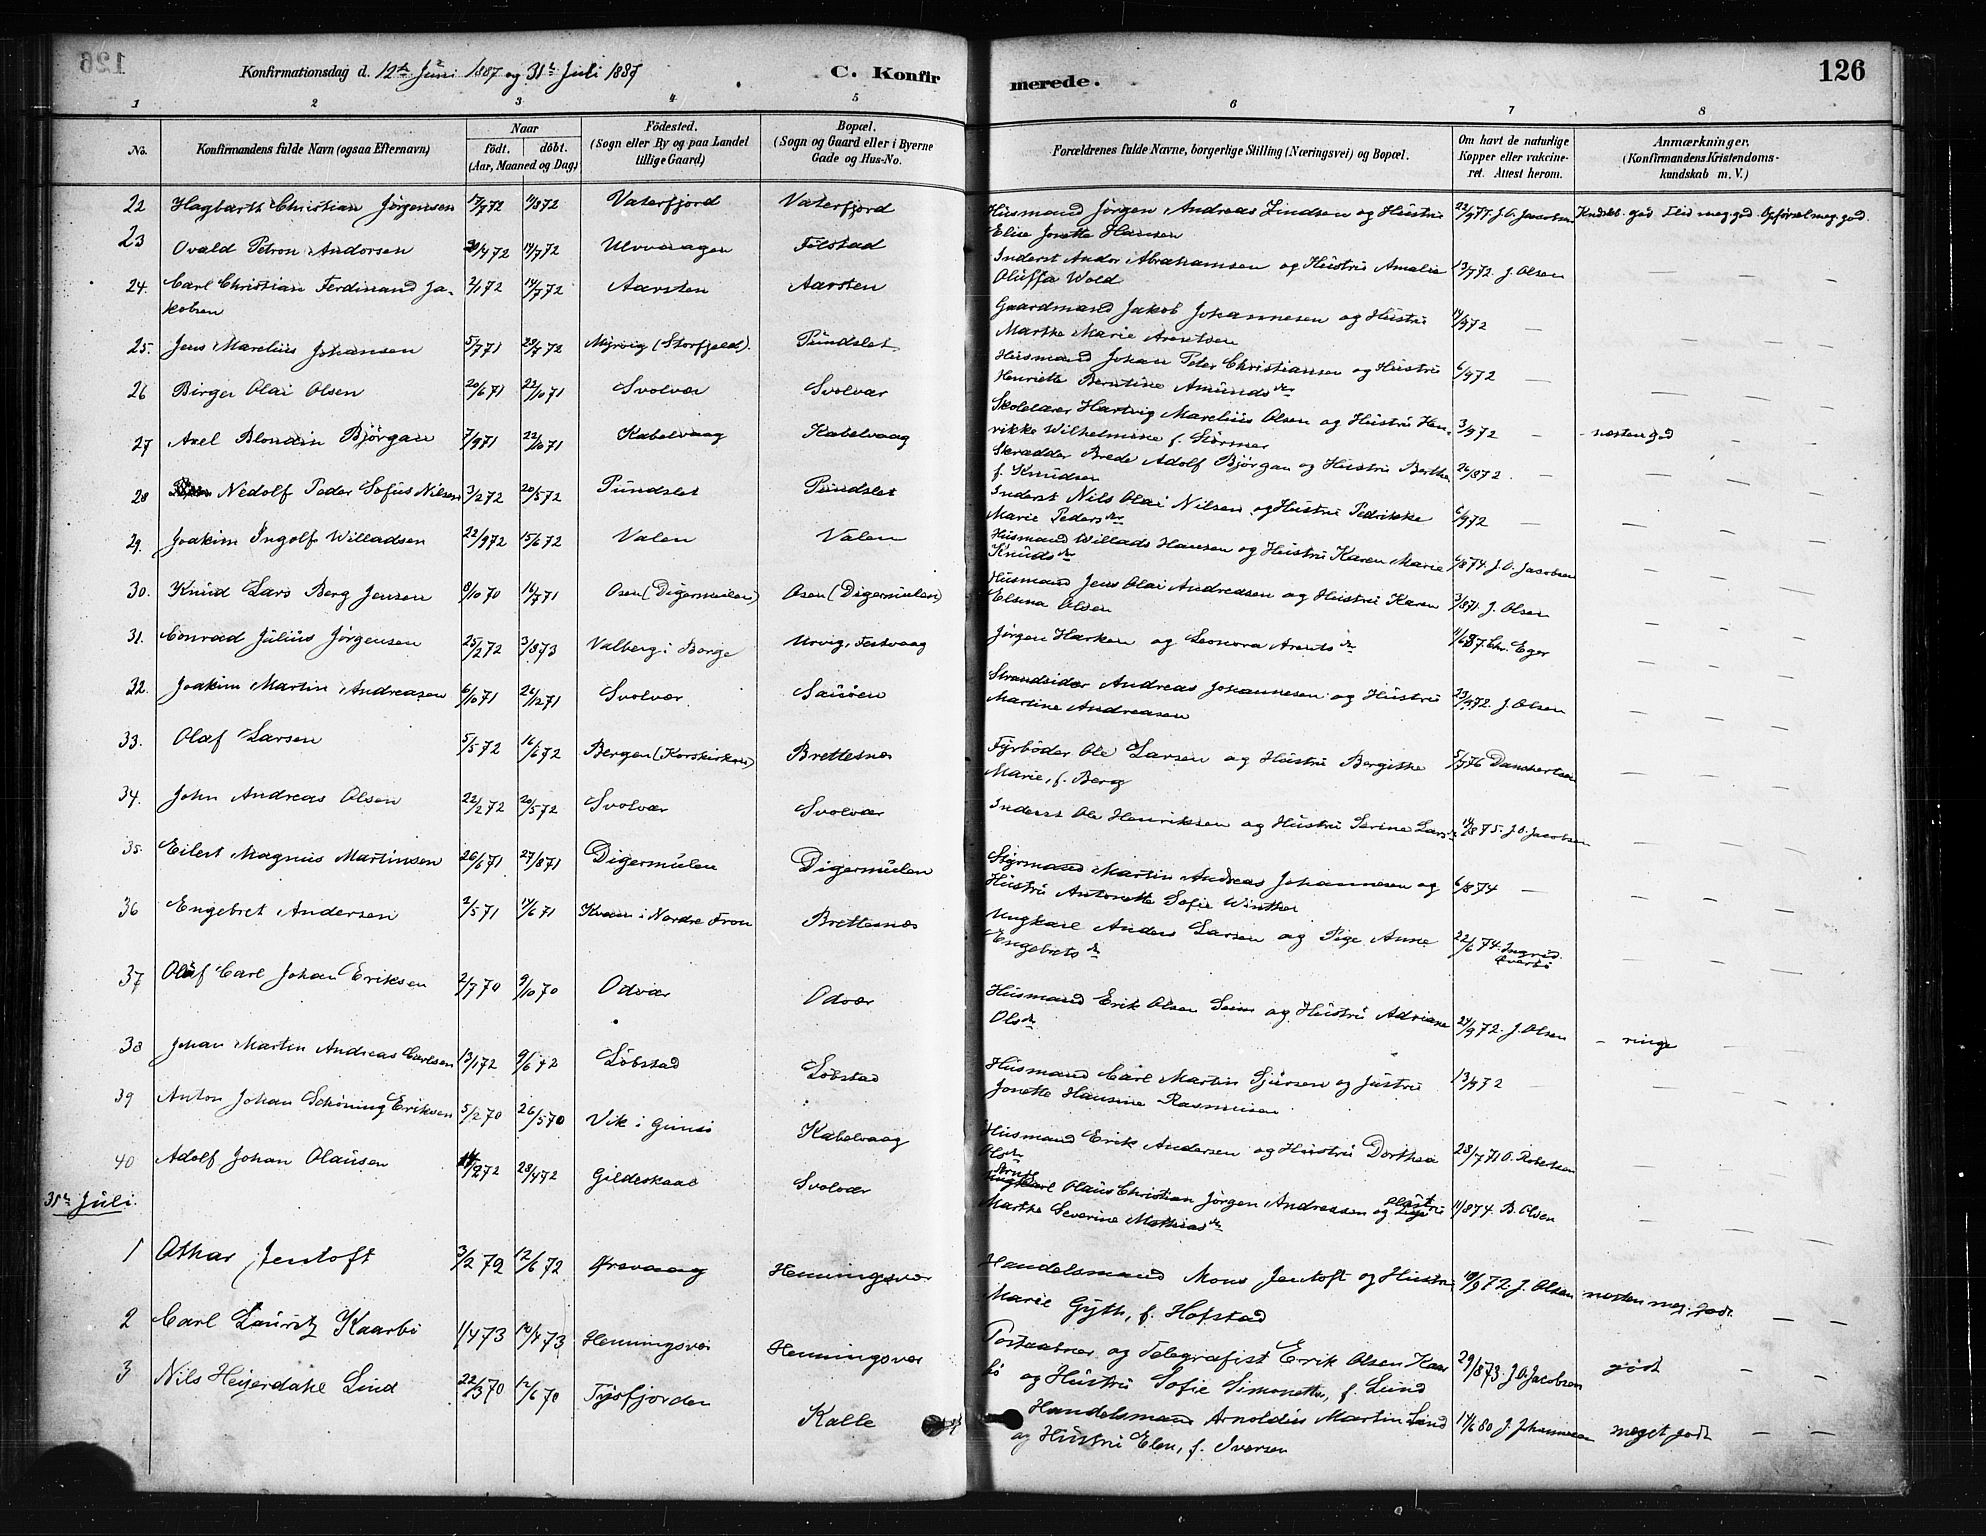 Konfirmationsdag d. 12te Juni 1887 og 31te Juli 1887
C. Konfirmerede.
126
1 2 3 4 5 6 7 8
No.
Konfirmandens fulde Navn (ogsaa Efternavn)
Naar
födt. döbt.
(Aar, Maaned og Dag)
Födested.
(Sogn eller By og paa Landet
tillige Gaard)
Bopæl.
(Sogn og Gaard eller i Byerne
Gade og Hus-No.
Forældrenes fulde Navne, borgerlige Stilling (Næringsvei) og Bopæl.
Om havt de naturlige
Kopper eller vakcine-
ret. Attest herom.
Anmærkninger.
(Konfirmandens Kristendoms-
kundskab m. V.)
22 Hagbarth Christian Jörgensen 17/7 72 11/8 72 Vaterfjord Vaterfjord Husmand Jörgen Andreas Lindsen og Hustru 22/9 77. J. O. Jacobsen Kundsk. god Flid meg. god. Opförsel meg. god.
Elise Jonette Hansen
23 Ovald Petron Andorsen 20/4 72 14/7 72 Ulvvaagen Filstad Inderst Andor Abrahamsen og Hustru Amalie 13/9 72. J. Olsen
Oluffa Wold
24. Carl Christian Ferdinand Ja- 2/1 72 14/7 72 Aarsten Aarsten Gaardmand Jakob Johannesen og Hustru 14/9 72
kobsen Marthe Marie Arentsen
25. Jens Marelius Johansen 5/7 71 29/7 72 Myrvig (Storfjeld). Pundslet Husmand Johan Peter Christiansen og Hustru 6/9 72
Henriette Berntine Amundsdr
26 Birger Olai Olsen 20/6 71 22/10 71 Svolvær Svolvær Skolelærer Hartvig Marelius Olsen og Hustru Hen- 3/9 72
rikke Wilhelmine f. Stormer
27 Axel Blondin Björgan 7/9 71 22/10 71 Kabelvaag Kabelvaag Skrædder Brede Adolf Björgan og Hustru Berthe 26/8 72 - næsten god
f. Knudsen
28 Nedolf Peder Sofus Nilsen 3/2 72 20/5 72 Pundslet Pundslet Inderst Nils Olai Nilsen og Hustru Pedrikke 6/9 72
Marie Pedersdr
29. Joakim Ingolf Willadsen 22/9 72 15/6 72 Valen Valen Husmand Willads Hansen og Hustru Karen Marie 6/8 74. J. O. Jacobsen
Knudsdr
30. Knud Lars Berg Jensen 8/10 70 16/7 71 Osen (Digermulen) Osen (Digermulen) Husmand Jens Olai Andreasen og Hustru Karen 3/8 71. J. Olsen
Elsina Olsen
31. Conrad Julius Jörgensen 25/2 72 3/8 73 Valberg i Borge Urvig, Festvaag Jörgen Harken og Leonora Arentsdr 11/6 87. Chr. Eger
32. Joakim Martin Andreasen 6/10 71 26/12 71 Svolvær Sauöen Strandsider Andreas Johannesen og Hustru 23/9 72. J. Olsen
Martine Andreasen
33. Olaf Larsen 5/5 72 16/6 72 Bergen (Korskirken) Brettesnes Fyrböder Ole Larsen og Hustru Bergithe 5/7 76 Danchertsen
Marie, f. Berg
34. John Andreas Olsen 22/2 72 20/5 72 Svolvær Svolvær Inderst Ole Henriksen og Hustru Serine Larsdr 14/8 75. J. O. Jacobsen
35. Eilert Magnus Martinsen 26/6 71 27/8 71 Digermulen Digermulen Styrmand Martin Andreas Johannesen og 6/8 74
Hustru Antonette Sofie Winther
36 Engebret Andersen 2/5 71 17/6 71 Kvam i Nordre Fron Brettesnes Ungkarl Anders Larsen og Pige Anne 22/6 74. Ingrid
Engebretsdr
37 Olaf Carl Johan Eriksen 2/7 70 9/10 70 Odvær Odvær Husmand Erik Olsen Seim og Hustru Adriane 24/9 72. J. Olsen - ringe
Olsdr
38 Johan Martin Andreas Carlsen 13/1 72 9/6 72 Löbstad Löbstad Husmand Carl Martin Sjursen og Justru 13/9 72
Jonette Hansine Rasmusen
39 Anton Johan Schöning Eriksen 5/2 70 26/5 70 Vik i Gimsö Kabelvaag Husmand Erik Andersen og Hustru Dorthea 28/7 71 O. Robertsen
Olsdr
40 Adolf Johan Olausen 14/2 72 28/4 72 Gildeskaal Svolvær Olaus Christian Jörgen Andreasen og Hustru 11/8 74. B. Olsen
Marthe Severine Mathiasdr
31te Juli.
1 Othar Jentoft 3/2 72 12/6 72 Örsvaag Henningsvær Handelsmand Mons Jentoft og Hustru 10/9 72. J. Olsen næsten meg. godt
Marie Gyth, f. Hofstad
2 Carl Lauritz Kaarbö 1/4 73 10/4 73 Henningsvær Henningsvær Postaabner og Telegrafist Erik Olsen Kaar 29/8 73. J. O. Jacobsen godt
bö og Hustru Sofie Simonette, f. Lund
3 Nils Heyerdahl Lind 22/3 70 12/6 70 Tysfjorden Kalle Handelsmand Arnoldus Martin Lind 17/6 80 J. Johannesen meget godt
og Hustru Elen, f. Iversen